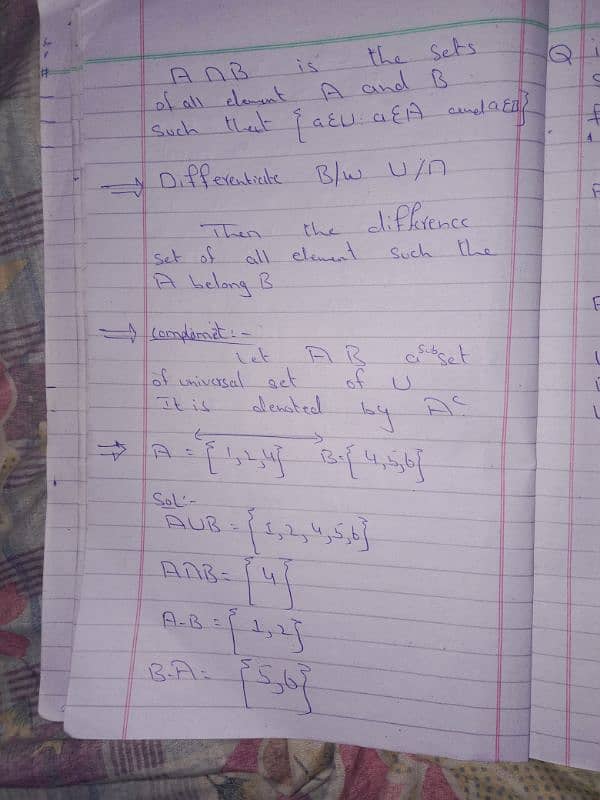 A ∩ B is the sets
of all element A and B
such that {a∈U: a∈A and a∈B}
⇒ Differenticate B/w U/∩
Then the difference
set of all element such the
A belong B
⇒ Complemet:-
Let A B a subset
of universal set of U
It is denoted by Aᶜ
⇒ A = {1,2,4} B={4,5,6}
Sol:-
AUB = {1,2,4,5,6}
A∩B= {4}
A-B = {1,2}
B-A= {5,6}
Q